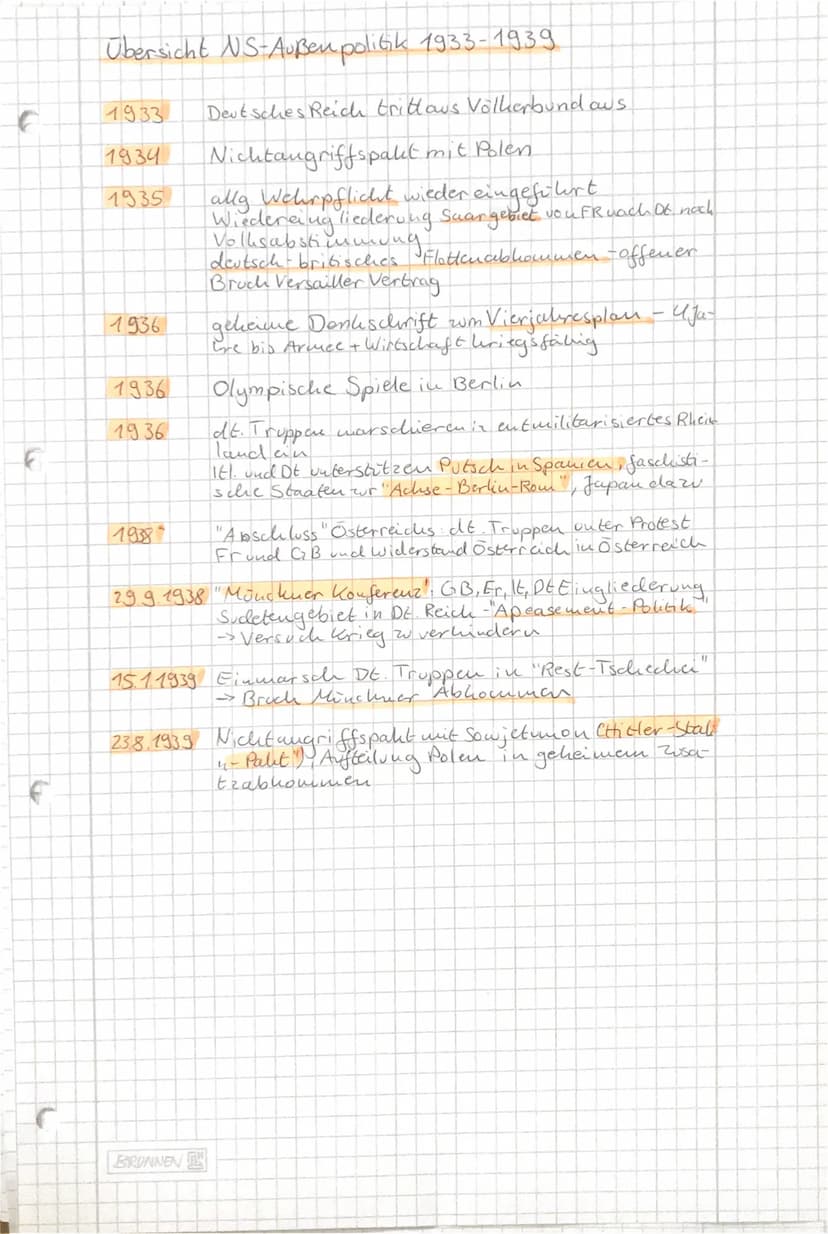 Übersicht NS-Außenpolitik 1933-1939
1933 Deutsches Reich tritt aus Völkerbund aus
1934 Nichtangriffspakt mit Polen
1935 allg Wehrpflicht wieder eingeführt
Wiedereingliederung Saargebiet von FR nach Dt. nach
Volksabstimmung
deutsch-britisches Flottenabkommen - offener
Bruch Versailler Vertrag
1936 geheime Denkschrift zum Vierjahresplan - 4 Ja-
hre bis Armee + Wirtschaft kriegsfähig
1936 Olympische Spiele in Berlin
1936 dt. Truppen marschieren in entmilitarisiertes Rhein
land ein
Itl. und Dt unterstützen Putsch in Spanien, faschisti-
sche Staaten zur "Achse-Berlin-Rom", Japan dazu
1938 "Anschluss" Österreichs dt. Truppen unter Protest
Fr und GB und Widerstand Österreich in Österreich
29.9.1938 "Münchner Konferenz": GB, Fr, It, Dt Eingliederung
Sudetengebiet in Dt. Reich - "Apeasement-Politik"
→ Versuch Krieg zu verhindern
15.1 1939 Einmarsch Dt. Truppen in "Rest-Tschechei"
→ Bruch Münchner Abkommen
23.8.1939 Nichtangriffspakt mit Sowjetunion (Hitler-Stali
n-Pakt"), Aufteilung Polen in geheimem Zusa-
tzabkommen
BRUNNEN